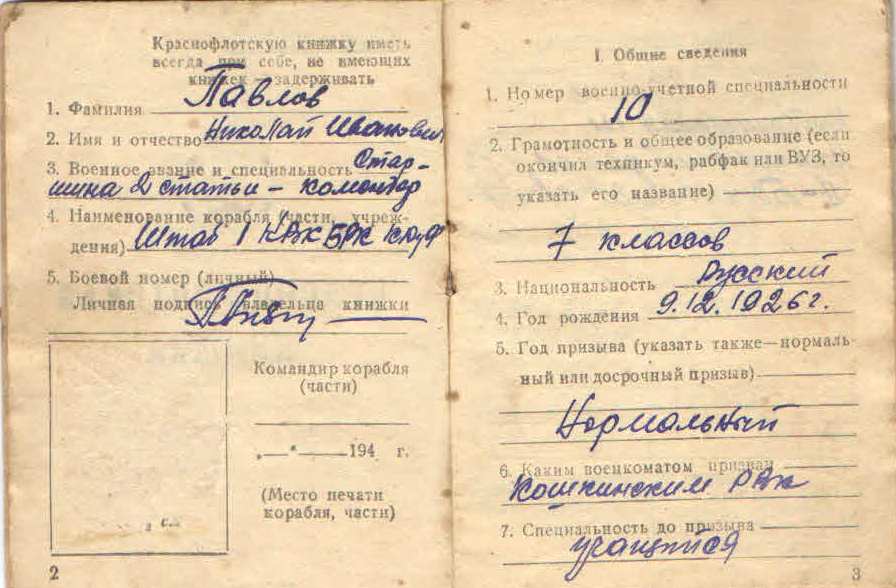 Краснофлотскую книжку иметь
всегда при себе, не имеющих
книжек — задерживать
1. Фамилия Павлов
2. Имя и отчество Николай Иванович
3. Военное звание и специальность Стар-
шина 2 статьи – командир
4. Наименование корабля (части, учреж-
дения) Штаб 1
5. Боевой номер (личный)
Личная подпись владельца книжки
Командир корабля
(части)
„—“ 194 г.
(Место печати
корабля, части)
2
I. Общие сведения
1. Номер военно-учетной специальности
10
2. Грамотность и общее образование (если
окончил техникум, рабфак или ВУЗ, то
указать его название)
7 классов
3. Национальность Русский
4. Год рождения 9.12.1926 г.
5. Год призыва (указать также—нормаль-
ный или досрочный призыв)
Нормальный
6. Каким военкоматом призван
Кошкинским РВк
7. Специальность до призыва
учащийся
3